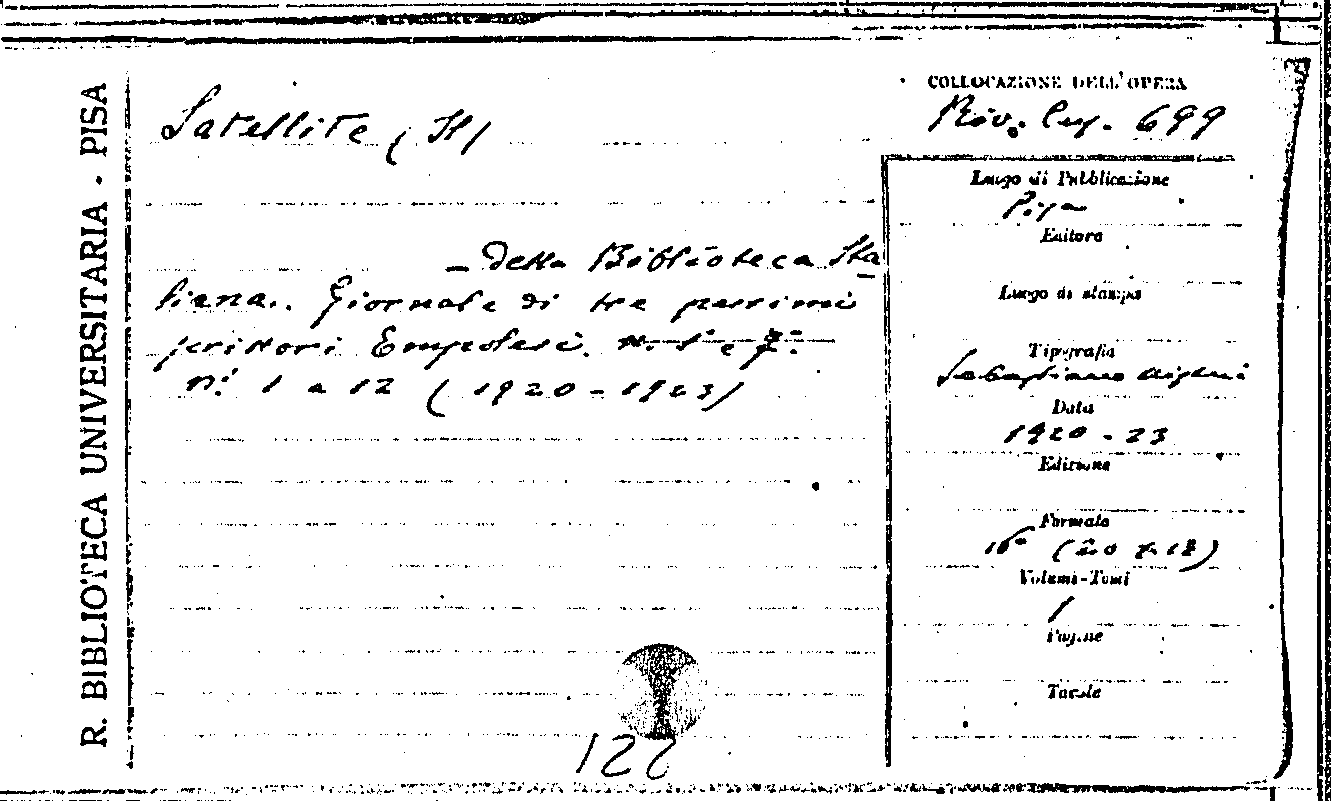 R. BIBLIOTECA UNIVERSITARIA - PISA
Satellite (Il)
- della Biblioteca Ita
liana. Giornale di tre pessimi
scrittori Empolesi. n. 1 e 7.
n.i 1 a 12 (1920-1923)
122
COLLOCAZIONE DELL'OPERA
Riv. 699
Luogo di Pubblicazione
Pisa
Editore
Luogo di stampa
Tipografia
Sebastiano
Data
1920-23
Edizione
Formato
16° (20 x 12)
Volumi-Tomi
1
Pagine
Tavole